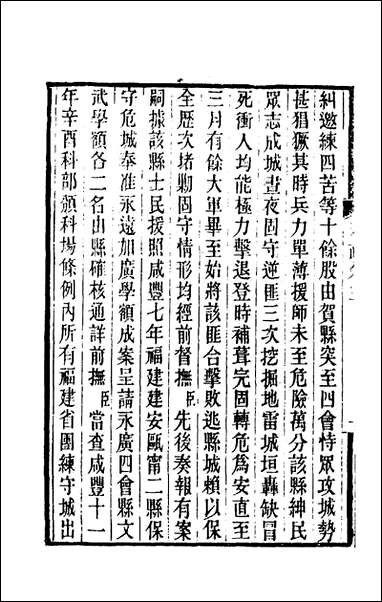 糾邀練四苦等十餘股由賀縣突至四會恃眾攻城勢
甚猖獗其時兵力單薄援師未至危險萬分該縣紳民
眾志成城晝夜固守逆匪三次挖掘地雷城垣轟缺冒
死衝人均能極力擊退登時補葺完固轉危為安直至
三月有餘大軍畢至始將該匪合擊敗逃縣城賴以保
全歷次堵剿固守情形均經前督撫臣先後奏報有案
嗣據該縣士民援照咸豐七年福建建安甌甯二縣保
守危城奉准永遠加廣學額成案呈請永廣四會縣文
武學額各二名由縣確核通詳前撫臣當查咸豐十一
年辛酉科部頒科場條例內所有福建省團練守城出